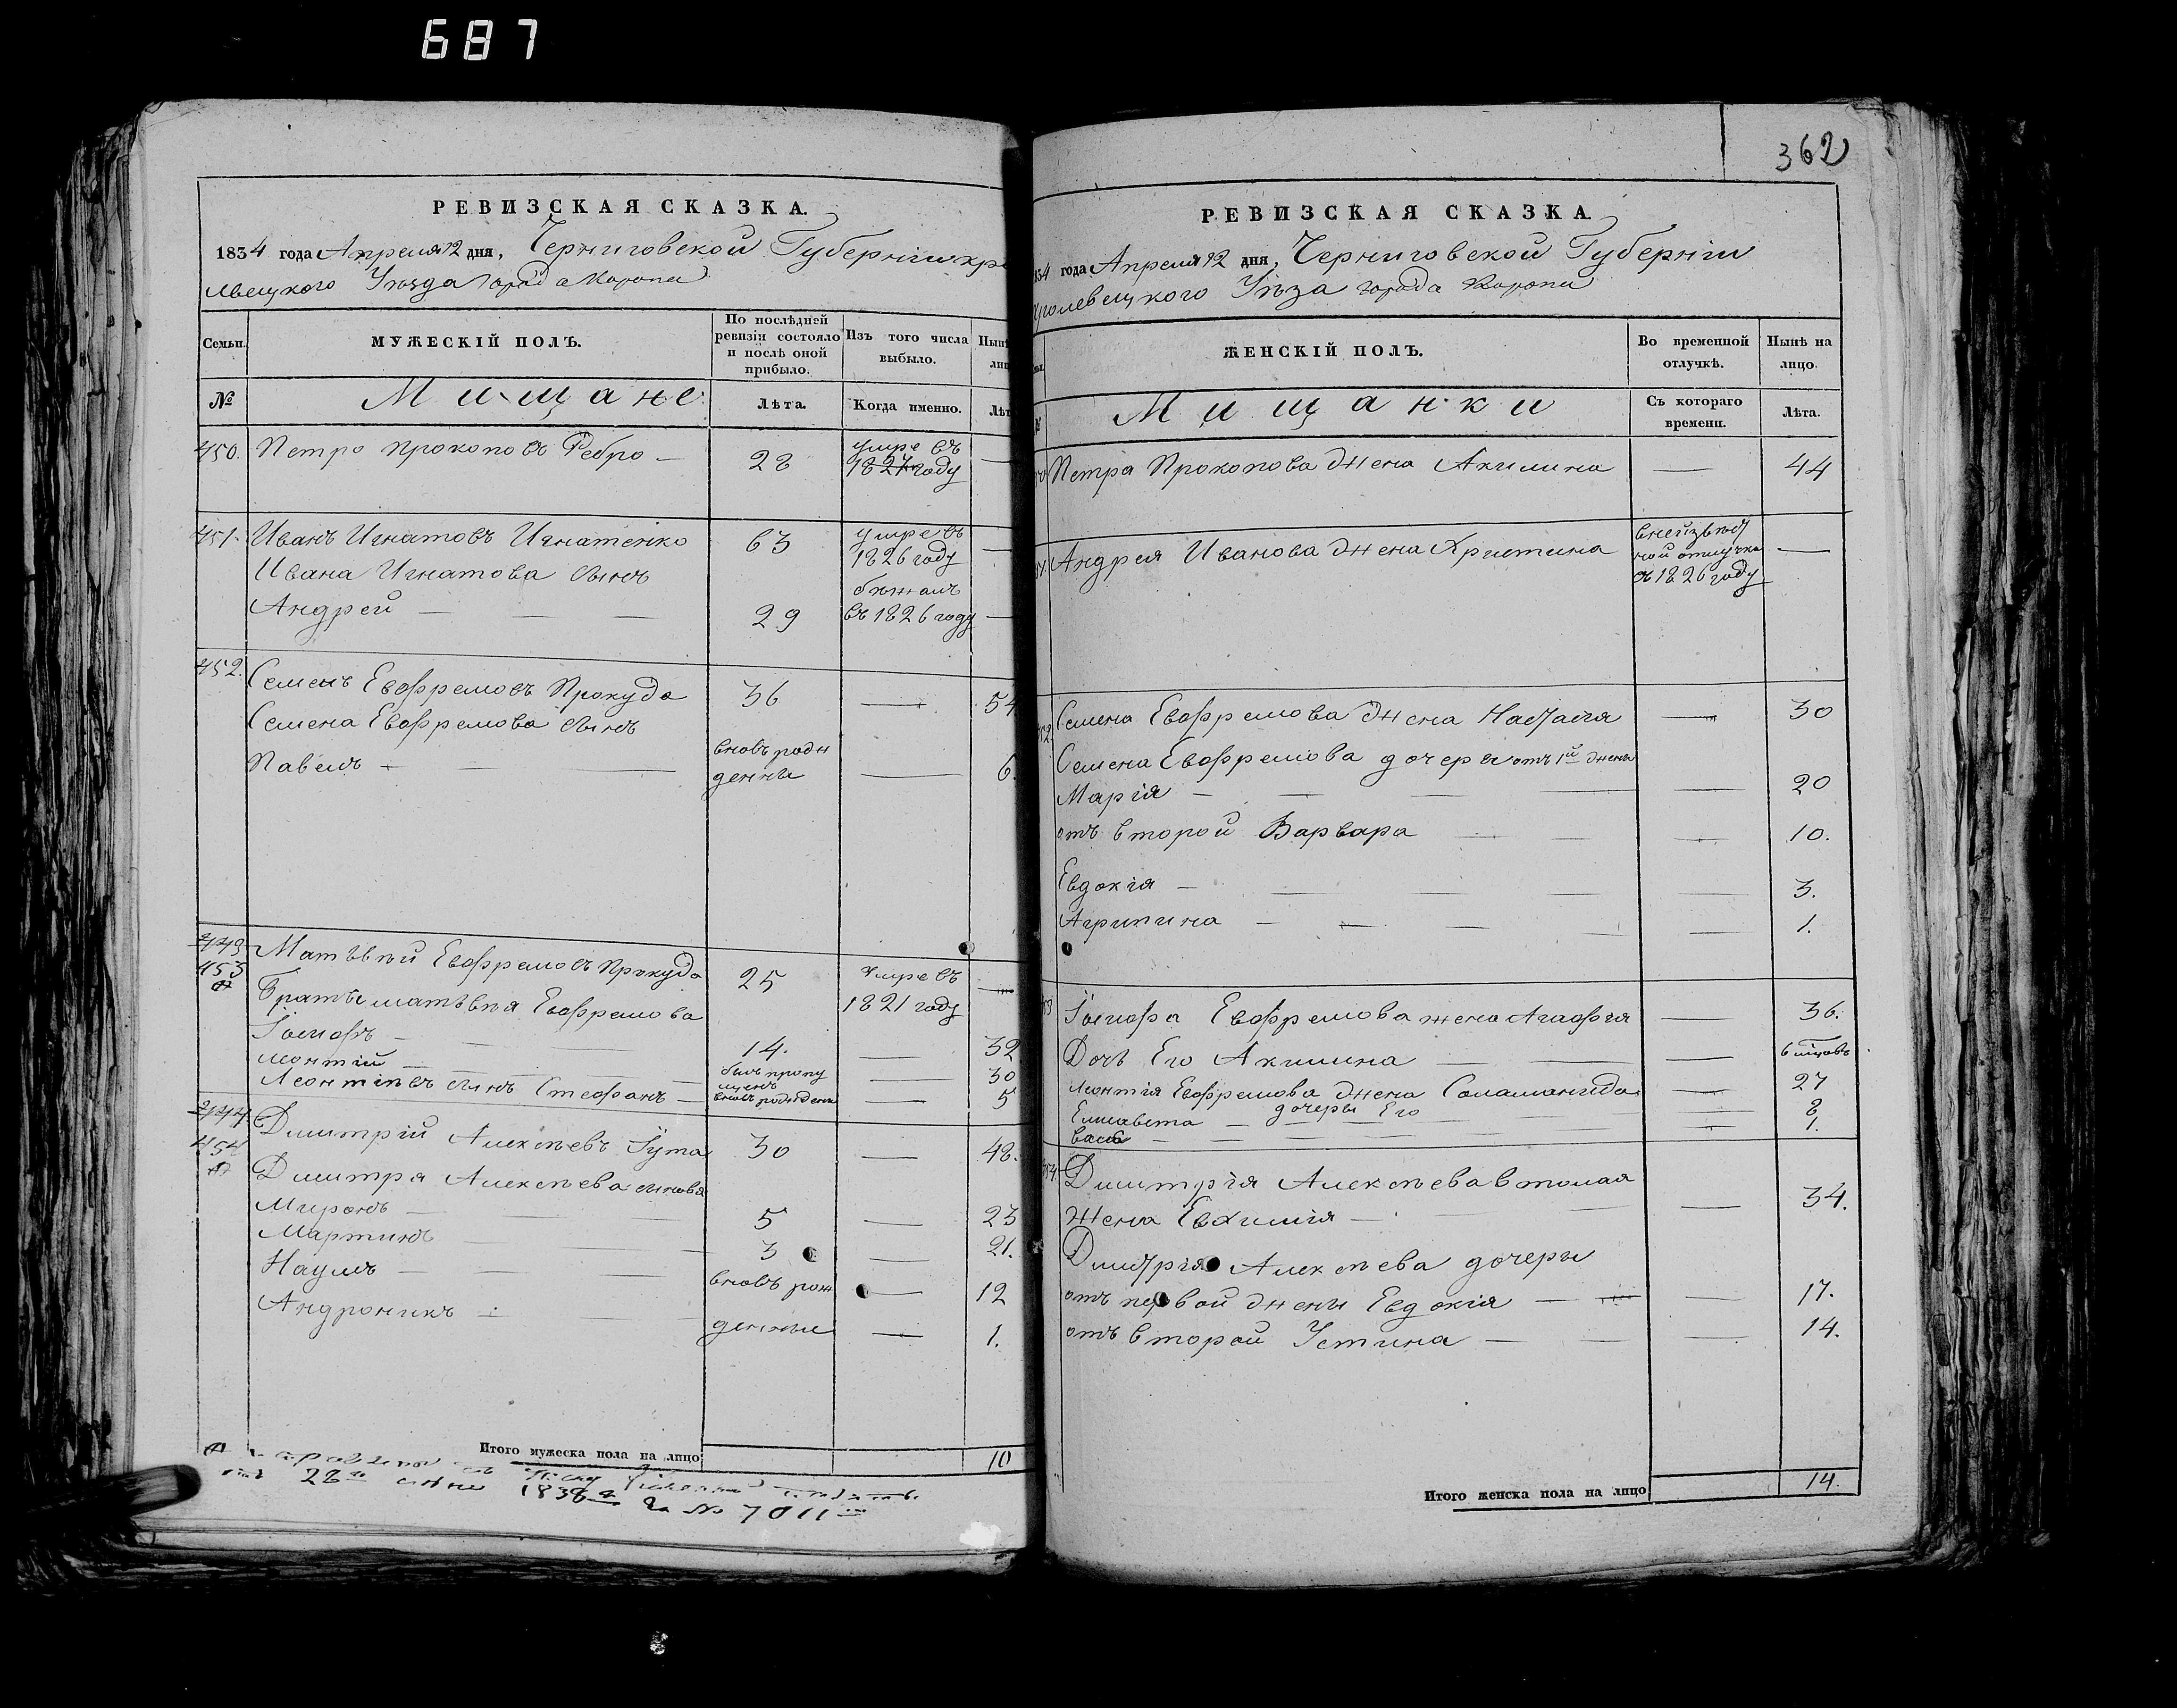 687
РЕВИЗСКАЯ СКАЗКА.
1834 года Апреля 12 дня, Черниговской Губернiи кро
левецкого Уѣзда города Коропа
Семьи.
МУЖЕСКIЙ ПОЛЪ.
По послѣдней ревизiи состояло и послѣ оной прибыло.
Изъ того числа выбыло.
Нынѣ лиц
№
Мищане
Лѣта.
Когда именно.
Лѣт
450. Петро Прокоповъ Ребро — 28 умре въ 1827 году —
451. Иванъ Игнатовъ Игнатенко 63 умре въ 1826 году —
Ивана Игнатова сынъ
Андрей — 29 бѣжалъ въ 1826 году —
452. Семенъ Евофремовъ Прокуда 36 — 54
Семена Евофремова сынъ
Павелъ — вновь рожденны — 6.
449
453 Матвѣй Евофремовъ Прокуда 25 умре въ 1821 году —
Братьи матвѣя Евофремова
Iосифъ — 14. — 32
леонтiй — былъ пропущенъ — 30
Леонтiевъ сынъ Стефанъ — вновь рожденъ — 5
444
454 Дмитрiй Алексѣевъ Гута 30 — 48.
Дмитра Алексѣева сыновя
Миронъ — 5 — 23
Мартинъ — 3 — 21.
Наумъ — вновь рож — 12
Андроникъ — денные — 1.
Итого мужеска пола на лицо 10
28 1838 за № 7011
362
РЕВИЗСКАЯ СКАЗКА
834 года Апреля 12 дня, Черниговской Губернiи
ролевецкого Уѣза города Коропа
ЖЕНСКIЙ ПОЛЪ.
Во временной отлучкѣ.
Нынѣ на лицо.
Мищанки
Съ котораго времени.
Лѣта.
Петра Прокопова жена Акилина — 44
Андрея Иванова жена Христина внеизвѣстной отлучке съ 1826 году —
Семена Евофремова жена Настасiя — 30
Семена Евофремова дочери отъ 1й жены
Марiя — 20
отъ второй Варвара — 10.
Евдокiя — 3.
Агрипина — 1.
Iосифа Евофремова жена Агафiя — 36.
Дочь Его Акилина — 6 мѣцовъ
леонтiя Евофремова жена Соломанида — 27
дочеры Его
Елисавета — 8
— 1.
Дмитрiя Алексѣева втолая
жена Евфимiя — 34.
Дмитрiя Алексѣева дочеры
отъ первой жены Евдокiя — 17.
отъ второй Устина — 14.
Итого женска пола на лицо 14.